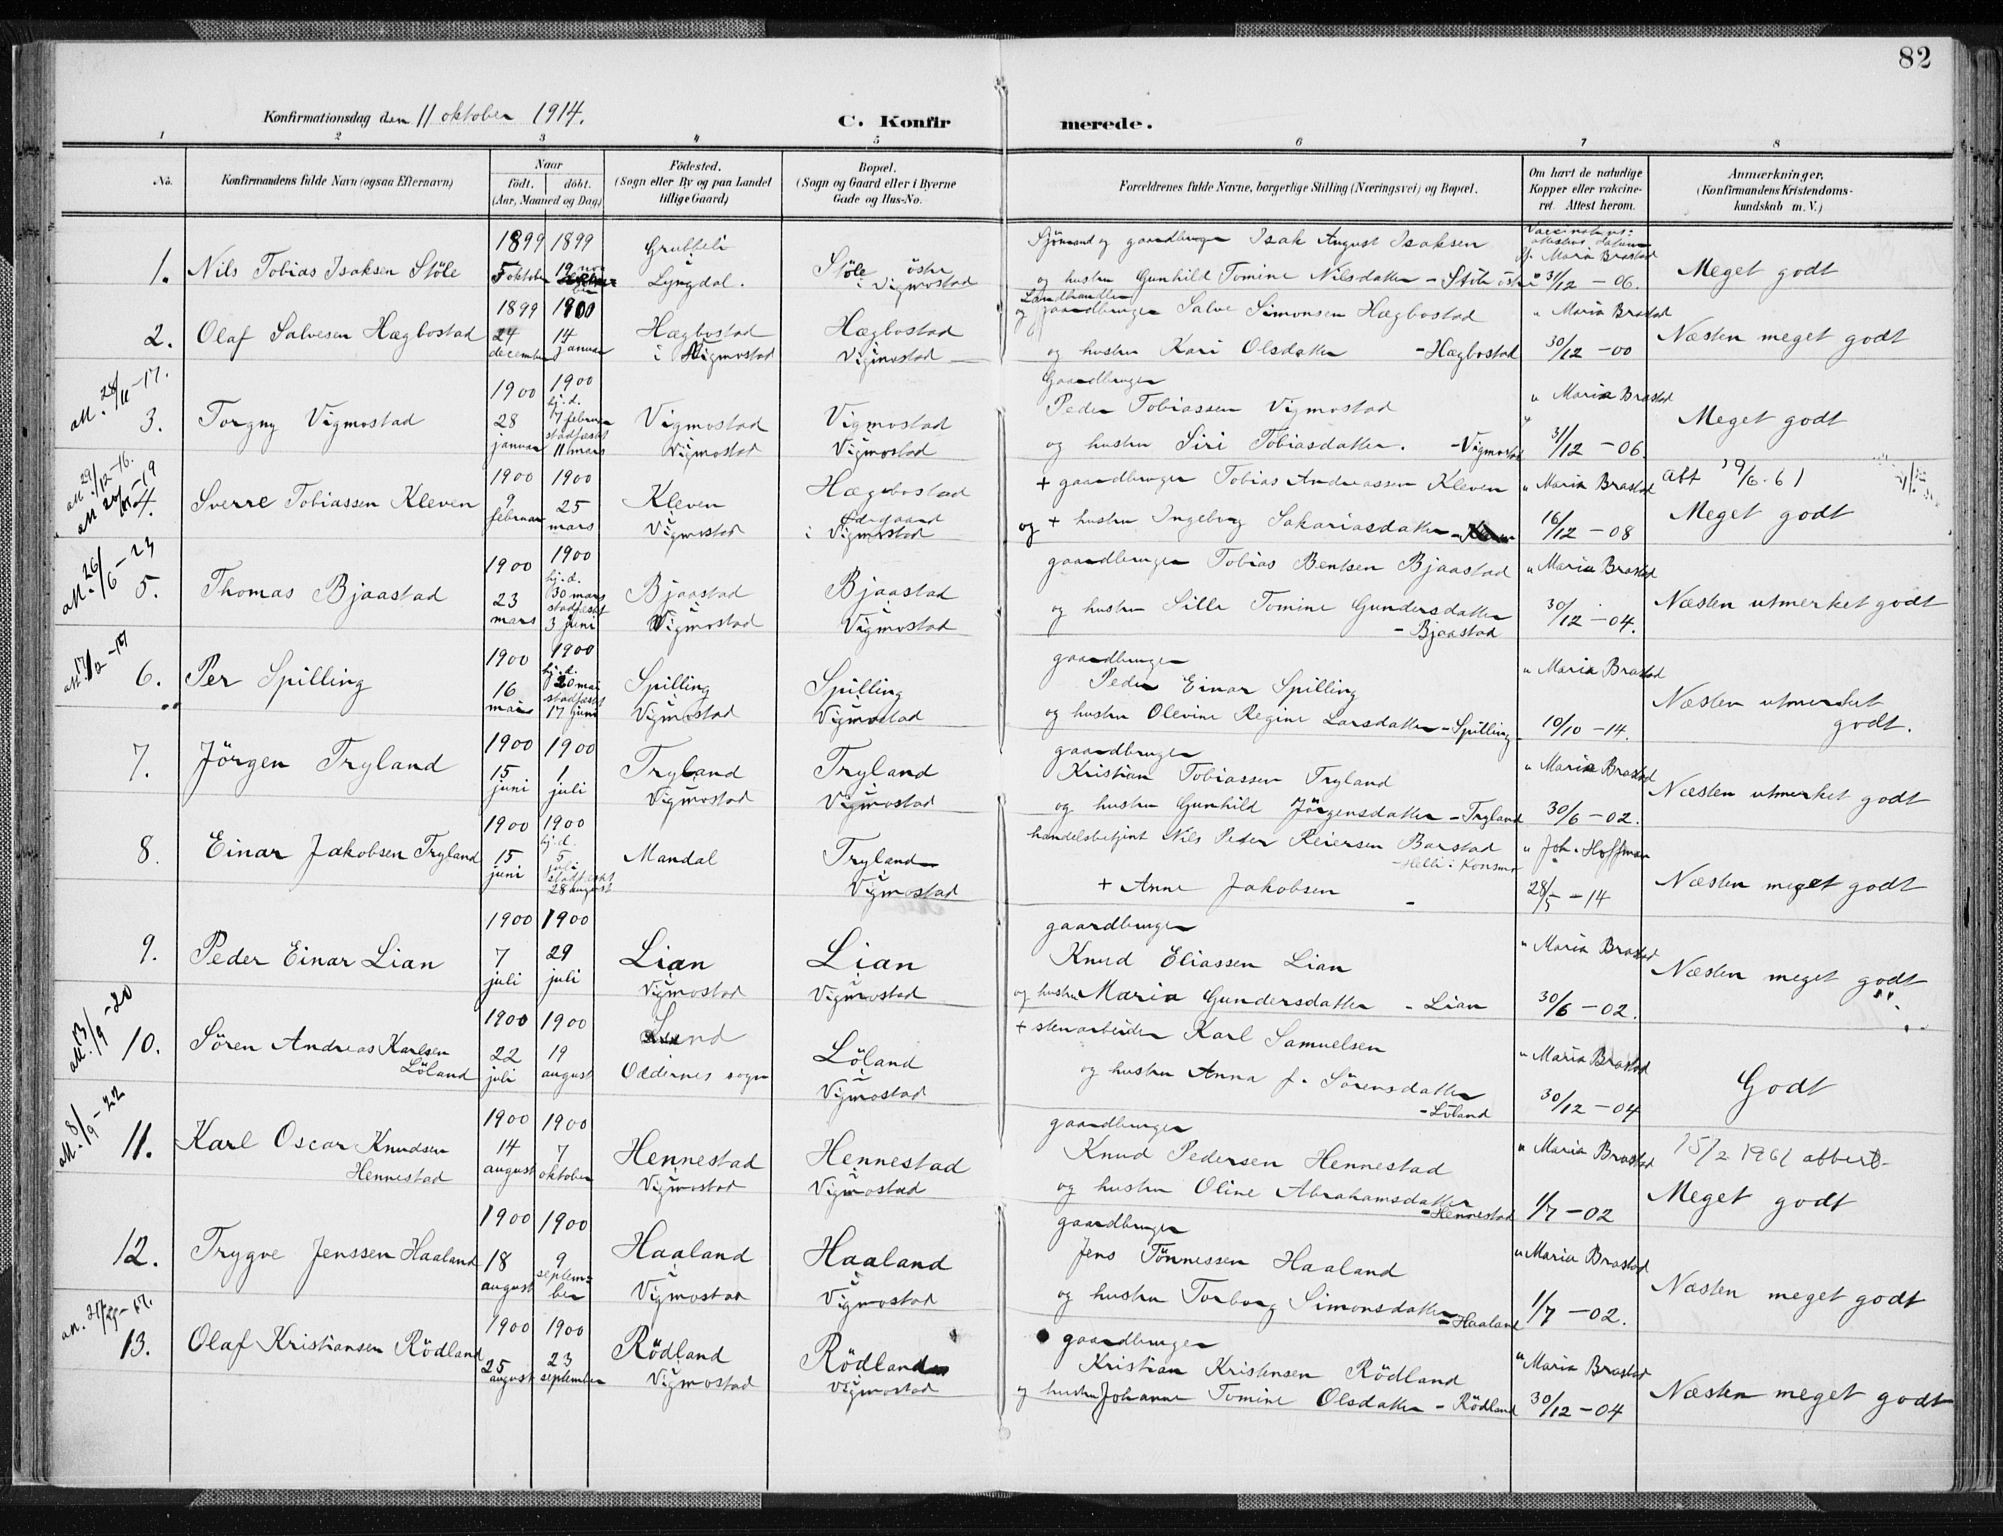 82
Konfirmationsdag den 11 oktober 1914.
C. Konfirmerede.
1 2 3 4 5 6 7 8
No.
Konfirmandens fulde Navn (ogsaa Efternavn)
Naar
födt. döbt.
(Aar, Maaned og Dag)
Födested.
(Sogn eller By og paa Landet
tillige Gaard)
Bopæl.
(Sogn og Gaard eller i Byerne
Gade og Hus-No.
Forældrenes fulde Navne, borgerlige Stilling (Næringsvei) og Bopæl.
Om havt de naturlige
Kopper eller vakcine-
ret. Attest herom.
Anmærkninger.
(Konfirmandens Kristendoms-
kundskab m. V.)
1. Nils Tobias Isaksen Støle
1899 5 oktober
1899 19
Lyngdal
Støle østre i Vigmostad
Sjömand og gaardbruger Isak August Isaksen
og hustru Gunhild Tomine Nilsdatter - Støle östre
Maria Brastad
31/12 - 06.
Meget godt
2. Olaf Salvesen Hægbostad
1899 24 december
1900 14 januar
Hægbostad i Vigmostad
Hægbostad Vigmostad
Landhandler
og gaardbruger Salve Simonsen Hægbostad
og hustru Kari Olsdatter - Hægbostad
" Maria Brastad
30/12 - 00
Næsten meget godt
3. Torgny Vigmostad
1900 28 januar
1900 hj.d. 7 februar stadfæstet 11 mars
Vigmostad Vigmostad
Vigmostad Vigmostad
Gaardbruger
Peder Tobiassen Vigmostad
og hustru Siri Tobiasdatter. - Vigmostad
" Maria Brastad
31/12 - 06.
Meget godt
4. Sverre Tobiassen Kleven
1900 9 februar
1900 25 mars
Kleven Vigmostad
Hægbostad i Vigmostad
+ gaardbruger Tobias Andreassen Kleven
og + hustru Ingeborg Sakariasdatter
" Maria Brastad
16/12 - 08
att 19/6.61
Meget godt
att. 26/6 - 23
5. Thomas Bjaastad
1900 23 mars
1900 hj.d. 30 mars stadfæstet 3 juni
Bjaastad Vigmostad
Bjaastad Vigmostad
gaardbruger Tobias Bentsen Bjaastad
og hustru Sille Tomine Gundersdatter
- Bjaastad
" Maria Brastad
30/12 - 04.
Næsten utmerket godt
6. Per Spilling
1900 16 mai
1900 hj.d. 20 mai stadfæstet 17 juni
Spilling Vigmostad
Spilling Vigmostad
gaardbruger
Peder Einar Spilling
og hustru Olevine Regine Larsdatter - Spilling
" Maria Brastad
10/10 - 14.
Næsten utmerket godt.
7. Jörgen Tryland
1900 15 juni
1900 1 juli
Tryland Vigmostad
Tryland Vigmostad
gaardbruger
Kristian Tobiassen Tryland
og hustru Gunhild Jörgensdatter - Tryland
" Maria Brastad
30/6 - 02.
Næsten utmerket godt
8. Einar Jakobsen Tryland
1900 15 juni
1900 hj.d. 5 juli stadfæstet 28 august
Mandal
Tryland Vigmostad
handelsbetjent Nils Peder Reiersen Barstad
- Helle i Konsmo
+ Anne Jakobsen -
" Joh. Hoffman
28/5 - 14
Næsten meget godt
9. Peder Einar Lian
1900 7 juli
1900 29 juli
Lian Vigmostad
Lian Vigmostad
gaardbruger
Knud Eliassen Lian
og hustru Maria Gundersdatter - Lian
" Maria Brastad
30/6 - 02.
Næsten meget godt
att. 13/9 - 20
10. Sören Andreas Karlsen Löland
1900 22 juli
1900 19 august
Oddernes sogn
Löland Vigmostad
+ stenarbeider Karl Samuelsen
og hustru Anna f. Sörensdatter
- Löland
" Maria Brastad
30/12 - 04
Godt
att. 8/9 - 22
11. Karl Oscar Knudsen Hennestad
1900 14 august
1900 7 oktober
Hennestad Vigmostad
Hennestad Vigmostad
gaardbruger
Knud Pedersen Hennestad
og hustru Oline Abrahamsdatter
- Hennestad
" Maria Brastad
1/7 - 02
15/2 1961 attest
Meget godt
12. Trygve Jenssen Haaland
1900 18 august
1900 9 september
Haaland Vigmostad
Haaland Vigmostad
gaardbruger
Jens Tönnessen Haaland
og hustru Torborg Simonsdatter - Haaland
" Maria Brastad
1/7 - 02.
Næsten meget godt
13. Olaf Kristiansen Rödland
1900 25 august
1900 23 september
Rödland Vigmostad
Rödland Vigmostad
gaardbruger
Kristian Kristensen Rödland
og hustru Johanne Tomine Olsdatter - Rödland
" Maria Brastad
30/12 - 04
Næsten meget godt